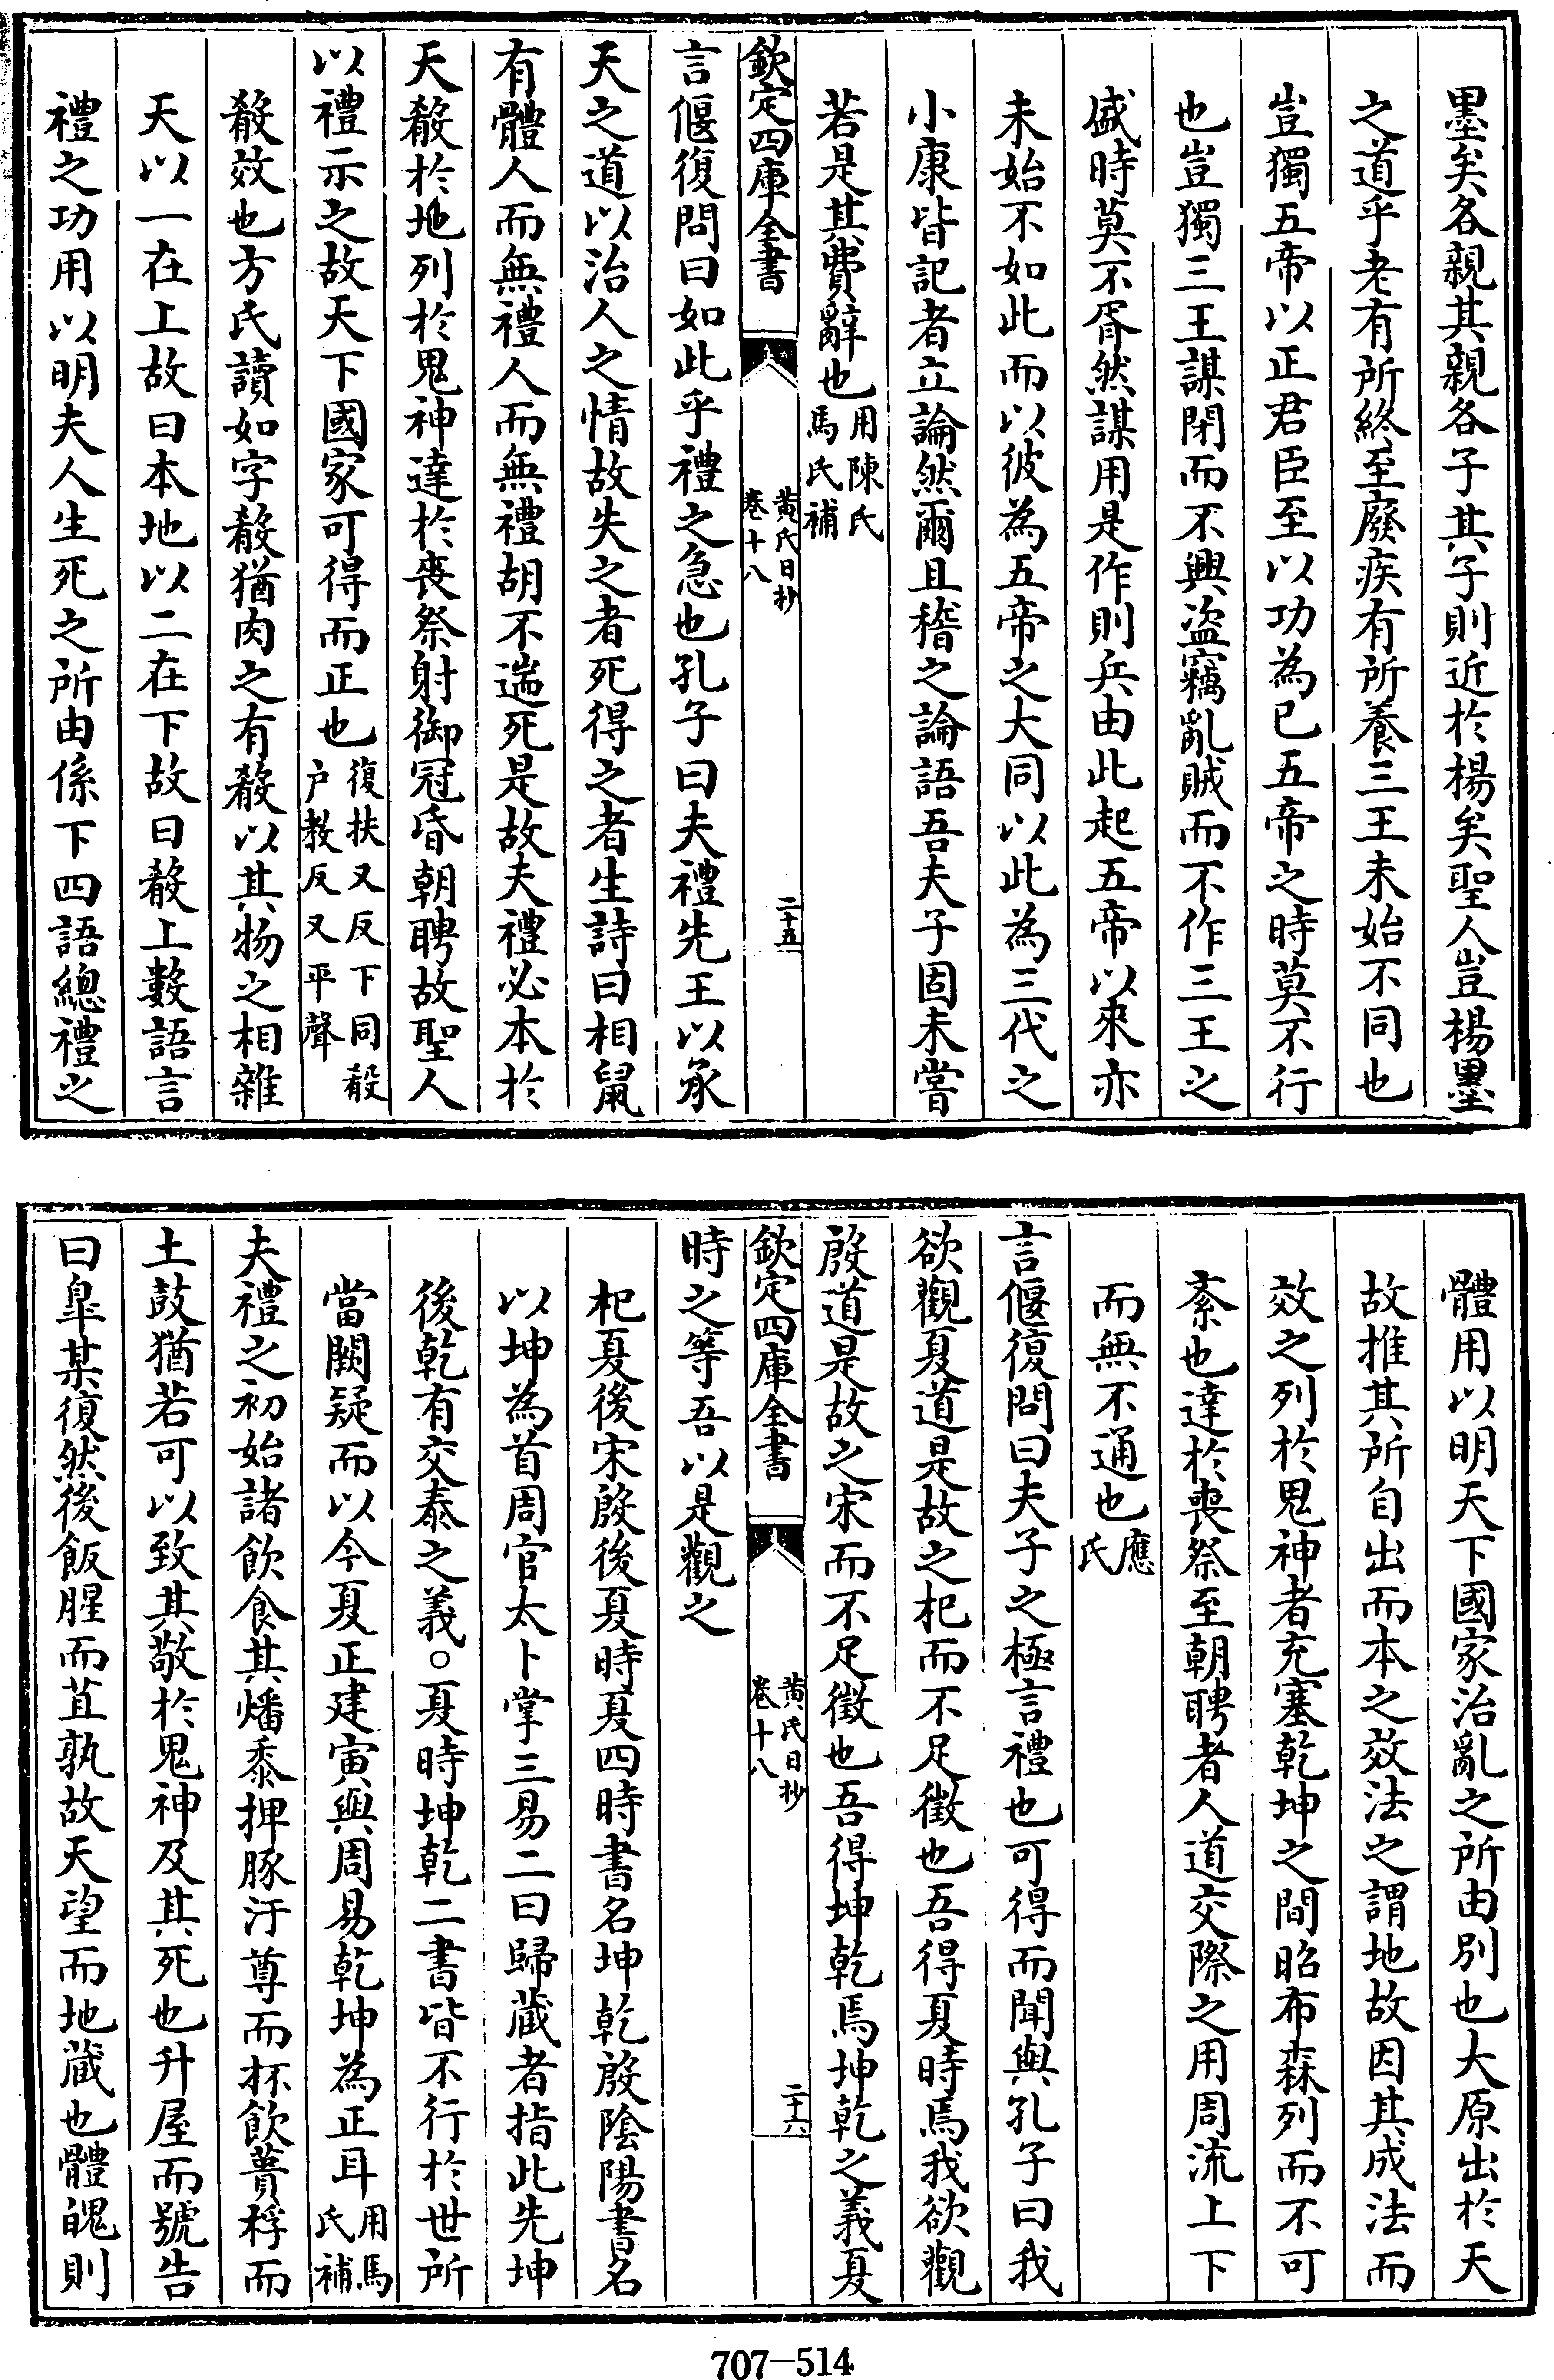 墨矣各親其親各子其子則近於楊矣聖人豈楊墨
之道乎老有所終至廢疾有所養三王未始不同也
豈獨五帝以正君臣至以功為已五帝之時莫不行
也豈獨三王謀閉而不興盜竊亂賊而不作三王之
盛時莫不胥然謀用是作則兵由此起五帝以來亦
未始不如此而以彼為五帝之大同以此為三代之
小康皆記者立論然爾且稽之論語吾夫子固未嘗
若是其費辭也用陳氏馬氏補
欽定四庫全書 黃氏日抄卷十八 二十五
言偃復問曰如此乎禮之急也孔子曰夫禮先王以承
天之道以治人之情故失之者死得之者生詩曰相鼠
有體人而無禮人而無禮胡不遄死是故夫禮必本於
天殽於地列於鬼神達於喪祭射御冠昏朝聘故聖人
以禮示之故天下國家可得而正也復扶又反下同殽户教反又平聲
殽效也方氏讀如字殽猶肉之有殽以其物之相雜
天以一在上故曰本地以二在下故曰殽上數語言
禮之功用以明夫人生死之所由係下四語總禮之
體用以明天下國家治亂之所由別也大原出於天
故推其所自出而本之效法之謂地故因其成法而
效之列於鬼神者充塞乾坤之間昭布森列而不可
紊也達於喪祭至朝聘者人道交際之用周流上下
而無不通也應氏
言偃復問曰夫子之極言禮也可得而聞與孔子曰我
欲觀夏道是故之杞而不足徵也吾得夏時焉我欲觀
殷道是故之宋而不足徵也吾得坤乾焉坤乾之義夏
欽定四庫全書 黃氏日抄卷十八 二十六
時之等吾以是觀之
杞夏後宋殷後夏時夏四時書名坤乾殷陰陽書名
以坤為首周官太卜掌三易二曰歸藏者指此先坤
後乾有交泰之義○夏時坤乾二書皆不行於世所
當闕疑而以今夏正建寅與周易乾坤為正耳用馬氏補
夫禮之初始諸飲食其燔黍捭豚汙尊而抔飲蕢桴而
土鼓猶若可以致其敬於鬼神及其死也升屋而號告
曰臯某復然後飯腥而苴孰故天望而地藏也體魄則
707—514